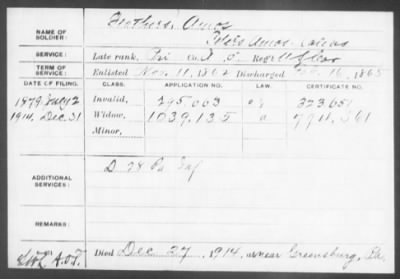 NAME OF SOLDIER: Feathers, Amos
Peters Amos
SERVICE: Late rank, Pri Co. Reg't
TERM OF SERVICE: Enlisted Nov. 11, 1862 Discharged 16, 1865
DATE OF FILING. CLASS. APPLICATION NO. LAW. CERTIFICATE NO.
1879 July 2 Invalid, 295,003 323651
1914, Dec 31 Widow, 1039,135 361
Minor,
ADDITIONAL SERVICES: D 28 Pa Inf
REMARKS:
Died Dec 27, 1914, at near Greensburg, Pa.